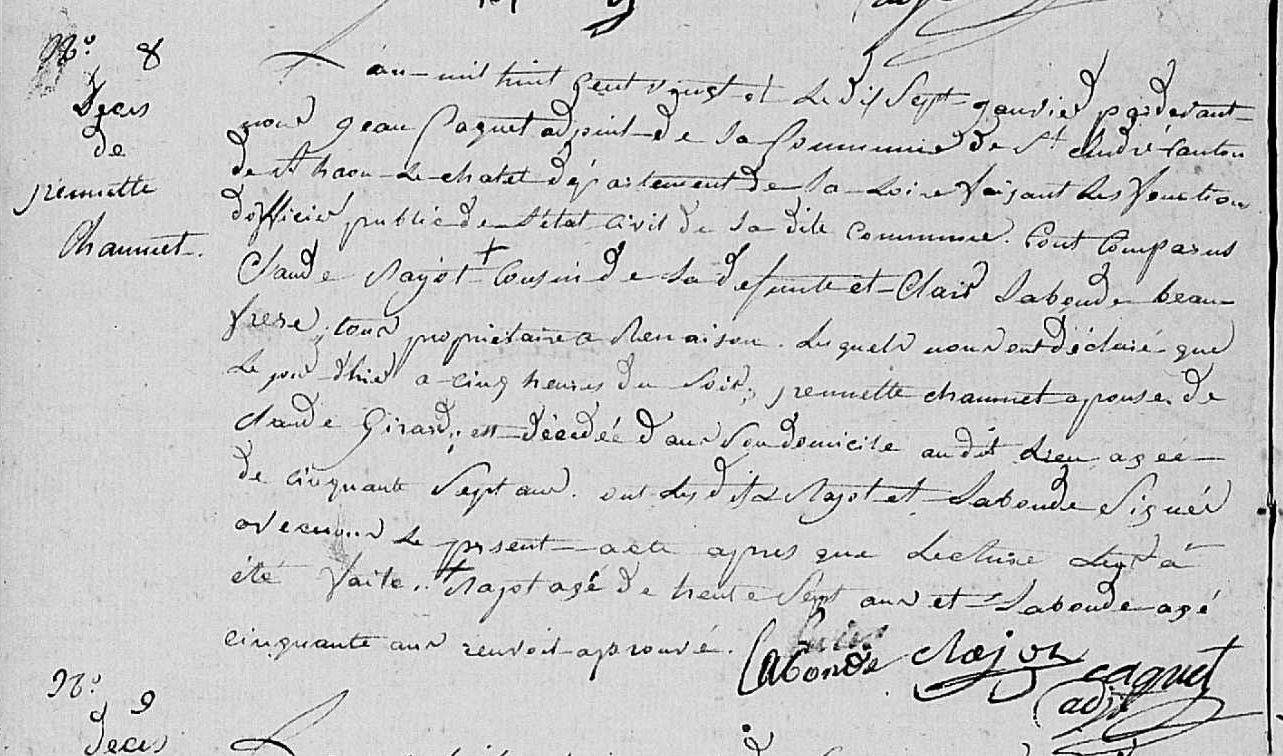 N.o 8
Deces
de
jennette
Chaumet.
L'an mil huit cent vingt et le dix sept janvier pardevant
nous jean Caquet adjoint de la Commune de St André Canton
de St haon le chatel département de la Loire faisant les fonction
d'officier public de l'état civil de la dite commune. Sont Comparus
Claude Majot + Cousin de la defunte et Clair Labonde beau
frere, tous propriétaire a Renaison. Lesquels nous ont déclaré que
Le jour d'hier a cinq heures du Soir, jennette chaumet epouse de
Claude Girard, est décédée dans Son domicile au dit Lieu agée
de cinquante Sept ans. ont Les dits Majot et Labonde Signés
avec nous Le present acte apres que Lecture Leur a
été faite. + Majot agé de trente Sept ans et Labonde agé
cinquante ans renvoit approuvé.
Labonde Majot caquet
adjt
N.o 9
Deces